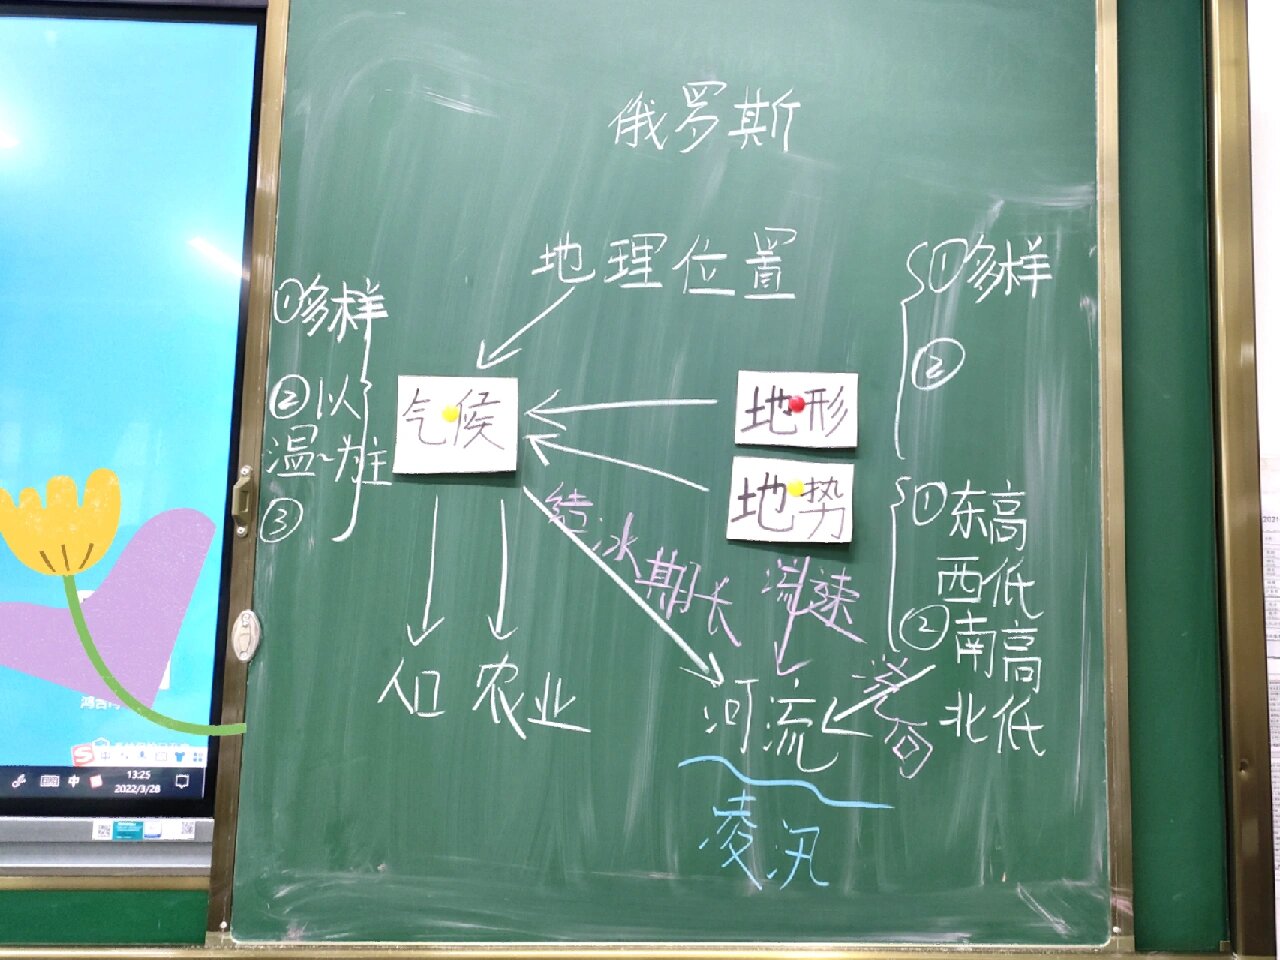 俄罗斯
地理位置
①多样
②以
温~为主
③
气候
地形
地势
①多样
②
①东高
西低
②南高
北低
结冰期长
流速
流向
人口 农业
河流
凌汛
中
13:25
2022/3/28